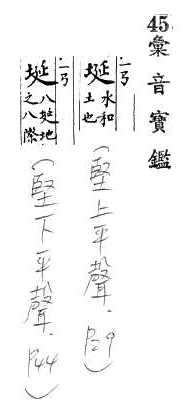 45彙音寶鑑
ㄧㄢ
埏
水和
土也
(堅上平聲. P29)
ㄧㄢ
埏
八埏地
之八際
(堅下平聲. P44)